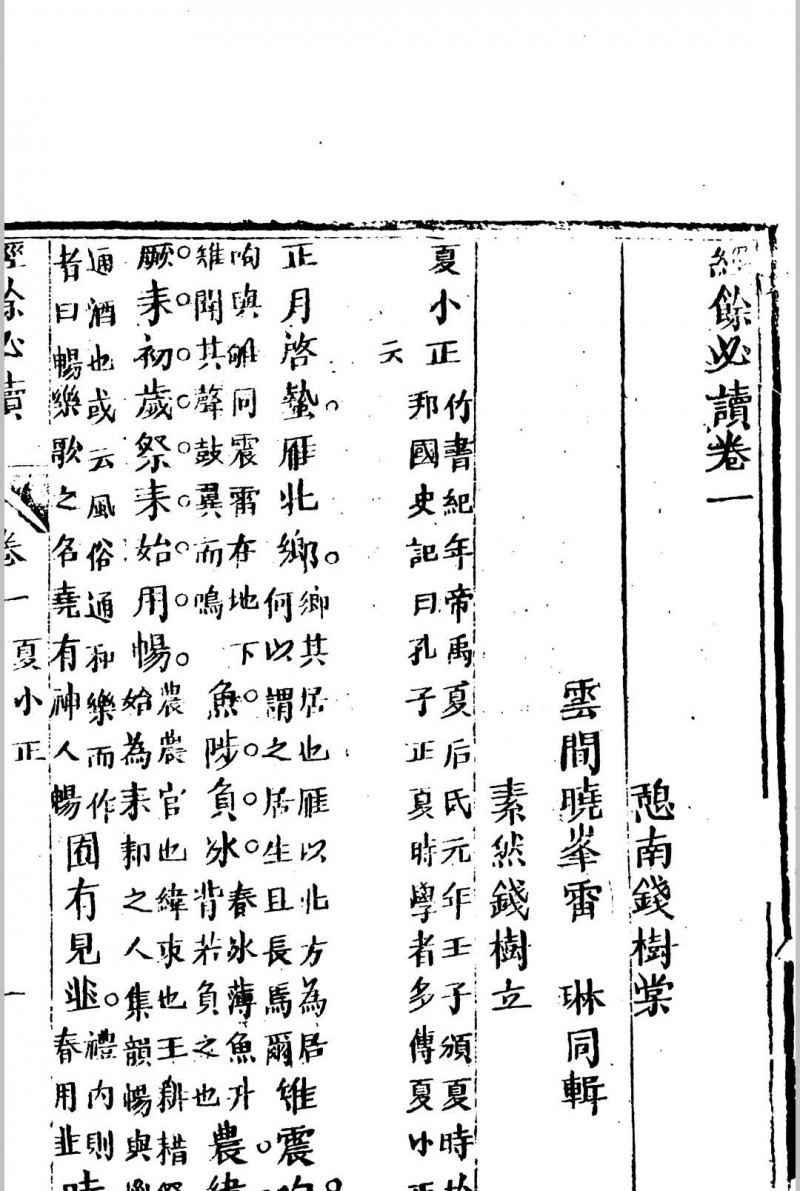 經餘必讀卷一
憩南錢樹棠
雲間曉峯雷　琳同輯
素然錢樹立
夏小正
竹書紀年帝禹夏后氏元年壬子頒夏時於
邦國史記曰孔子正夏時學者多傳夏小正
云
正月啓蟄。雁北鄉。鄉其居也雁以北方為居
何以謂之居生且長焉爾雉震呴。
呴與雊同震雷在地下
雉聞其聲鼓翼而鳴
魚陟負冰。春冰薄魚升
背若負之也
農緯
厥耒初歲祭耒始用暢。農農官也緯束也王耕耤
始為耒耜之人集韻暢與
通酒也或云風俗通和樂而作
者曰暢樂歌之名堯有神人暢
囿有見韭。禮內則
春用韭
經餘必讀
卷一
夏小正
一